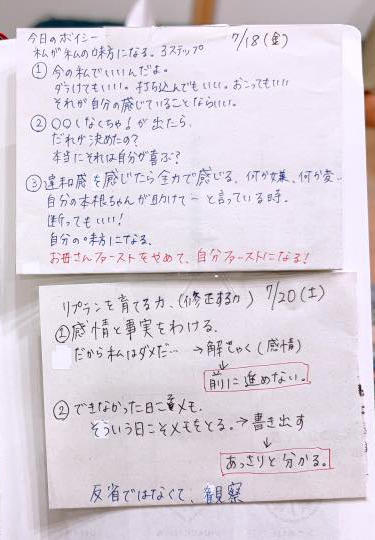 今日のボイシー 7/18(金)
私が私の味方になる。3ステップ
① 今の私でいいんだよ。
ダラけてもいい。打ち込んでもいい。おこってもいい
それが自分の感じていることならいい。
② ○○しなくちゃ!が出たら、
だれが決めたの?
本当にそれは自分が喜ぶ?
③ 違和感を感じたら全力で感じる、何が嫌、何が変..
自分の本根ちゃんが助けて〜と言っている時。
断ってもいい!
自分の味方になる。
お母さんファーストをやめて、自分ファーストになる!
リプランを育てる力、(修正する力) 7/20(土)
① 感情と事実をわける。
だから私はダメだ… → 解しゃく(感情)
↓
前に進めない。
② できなかった日こそメモ。
そういう日こそメモをとる。→ 書き出す
↓
あっさりと分かる。
反省ではなくて、観察